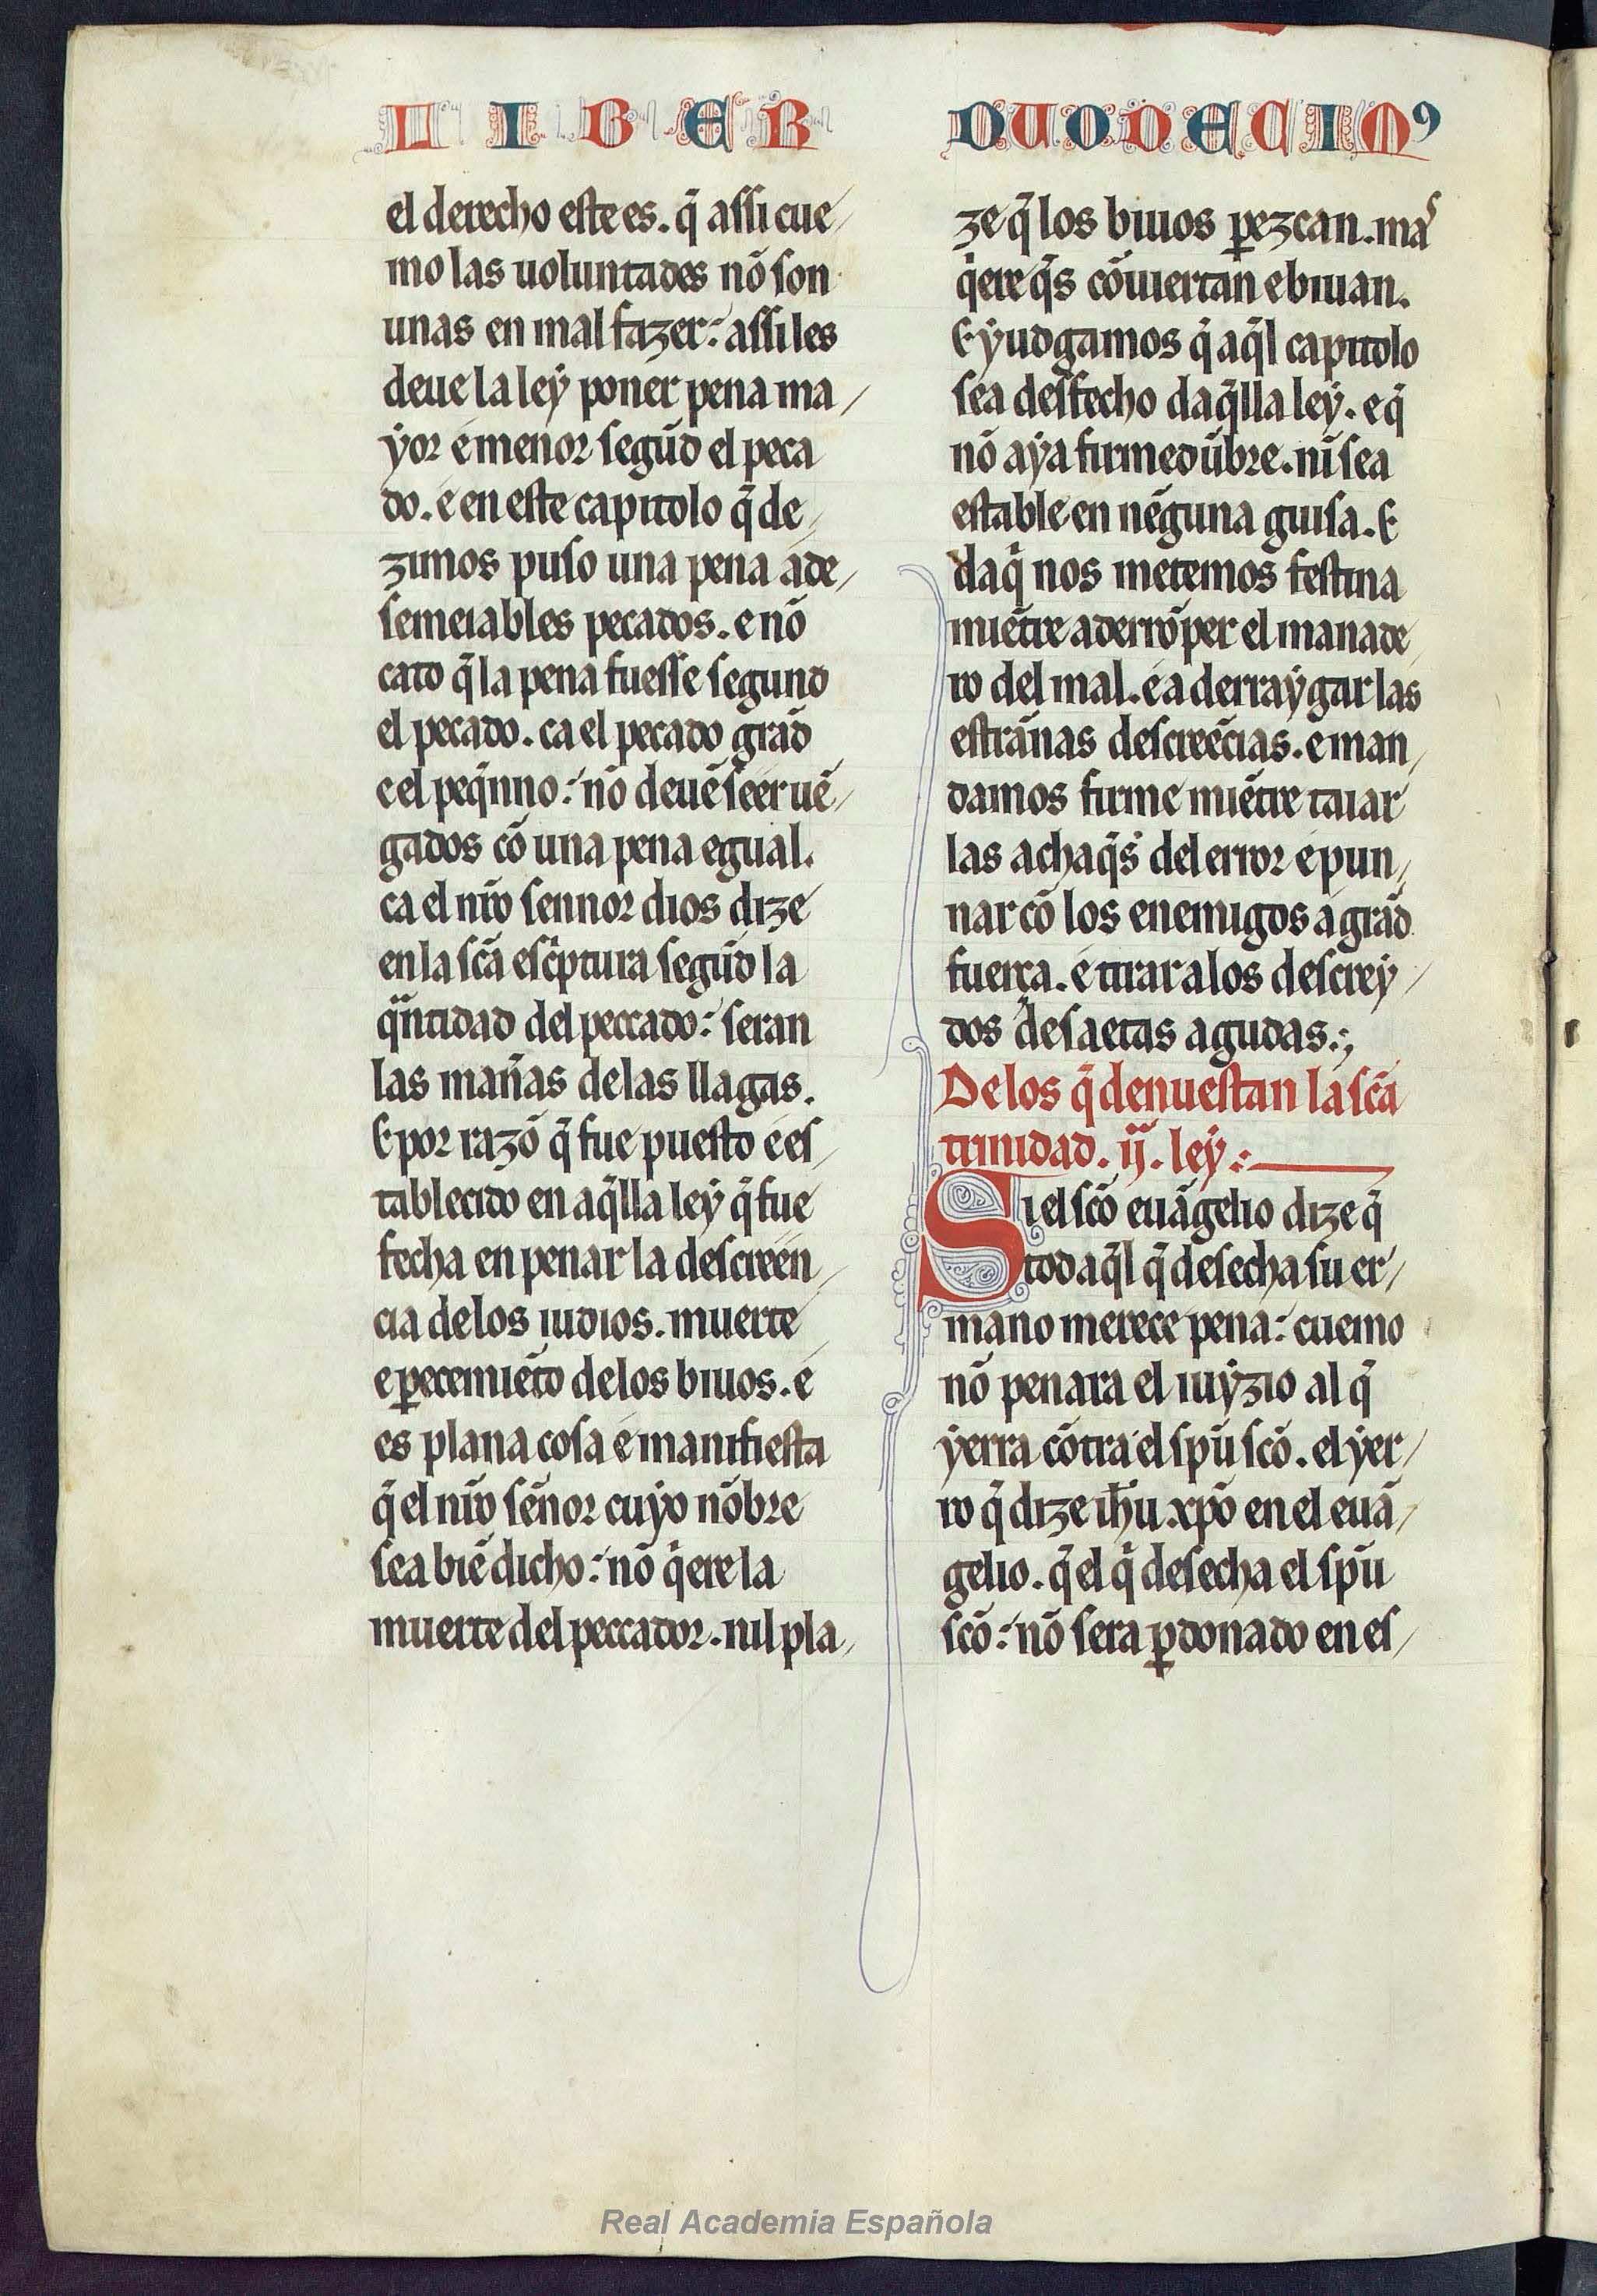 LIBER DUODECIMꝰ
el derecho este es. q̃ assi cue
mo las uoluntades nõ son
unas en mal fazer: assi les
deue la leẏ poner pena ma
ẏor e menor segũd el peca
do. e en este capitolo q̃ de
zimos puso una pena a de
semeiables pecados. e nõ
cato q̃ la pena fuesse segund
el pecado. ca el pecado grãd
e el peq̃nno: nõ deuẽ seer uẽ
gados cõ una pena egual.
ca el nr̃o sennor dios dize
en la sc̃a esc̃ptura segũd la
q̃ntidad del peccado: seran
las mañas de las llagas.
E por razõ q̃ fue puesto e es
tablecido en aq̃lla leẏ q̃ fue
fecha en penar la descreen
cia de los iudios. muerte
e ꝑecemiẽto de los biuos. e
es plana cosa e manifiesta
q̃ el nr̃o sẽnor cuẏo nõbre
sea biẽ dicho: nõ q̃ere la
muerte del peccador. nil pla
ze q̃ los biuos ꝑezcan. mas
q̃ere q̃s cõuiertan e biuan.
E ẏudgamos q̃ aq̃l capitolo
sea desfecho daq̃lla leẏ. e q̃
nõ aẏa firmedũbre. nĩ sea
estable en nẽguna guisa. E
daq̃ nos metemos festina
miẽtre a derrõper el manade
ro del mal. e a derraẏgar las
estrãnas descreẽcias. e man
damos firme miẽtre taiar
las achaq̃s del error e pun
nar cõ los enemigos a grãd
fuerça. e tirar a los descreẏ
dos de saetas agudas.
De los q̃ denuestan la sc̃a
trinidad. ij. leẏ.
Si el sc̃o euãgelio dize q̃
tod aq̃l q̃ desecha su er
mano merece pena: cuemo
nõ penara el iuẏzio al q̃
ẏerra cõtra el sp̃u sc̃o. el ẏer
ro q̃ dize ih̃u xp̃o en el euã
gelio. q̃ el q̃ desecha el sp̃u
sc̃o: nõ sera ꝑdonado en es
Real Academia Española